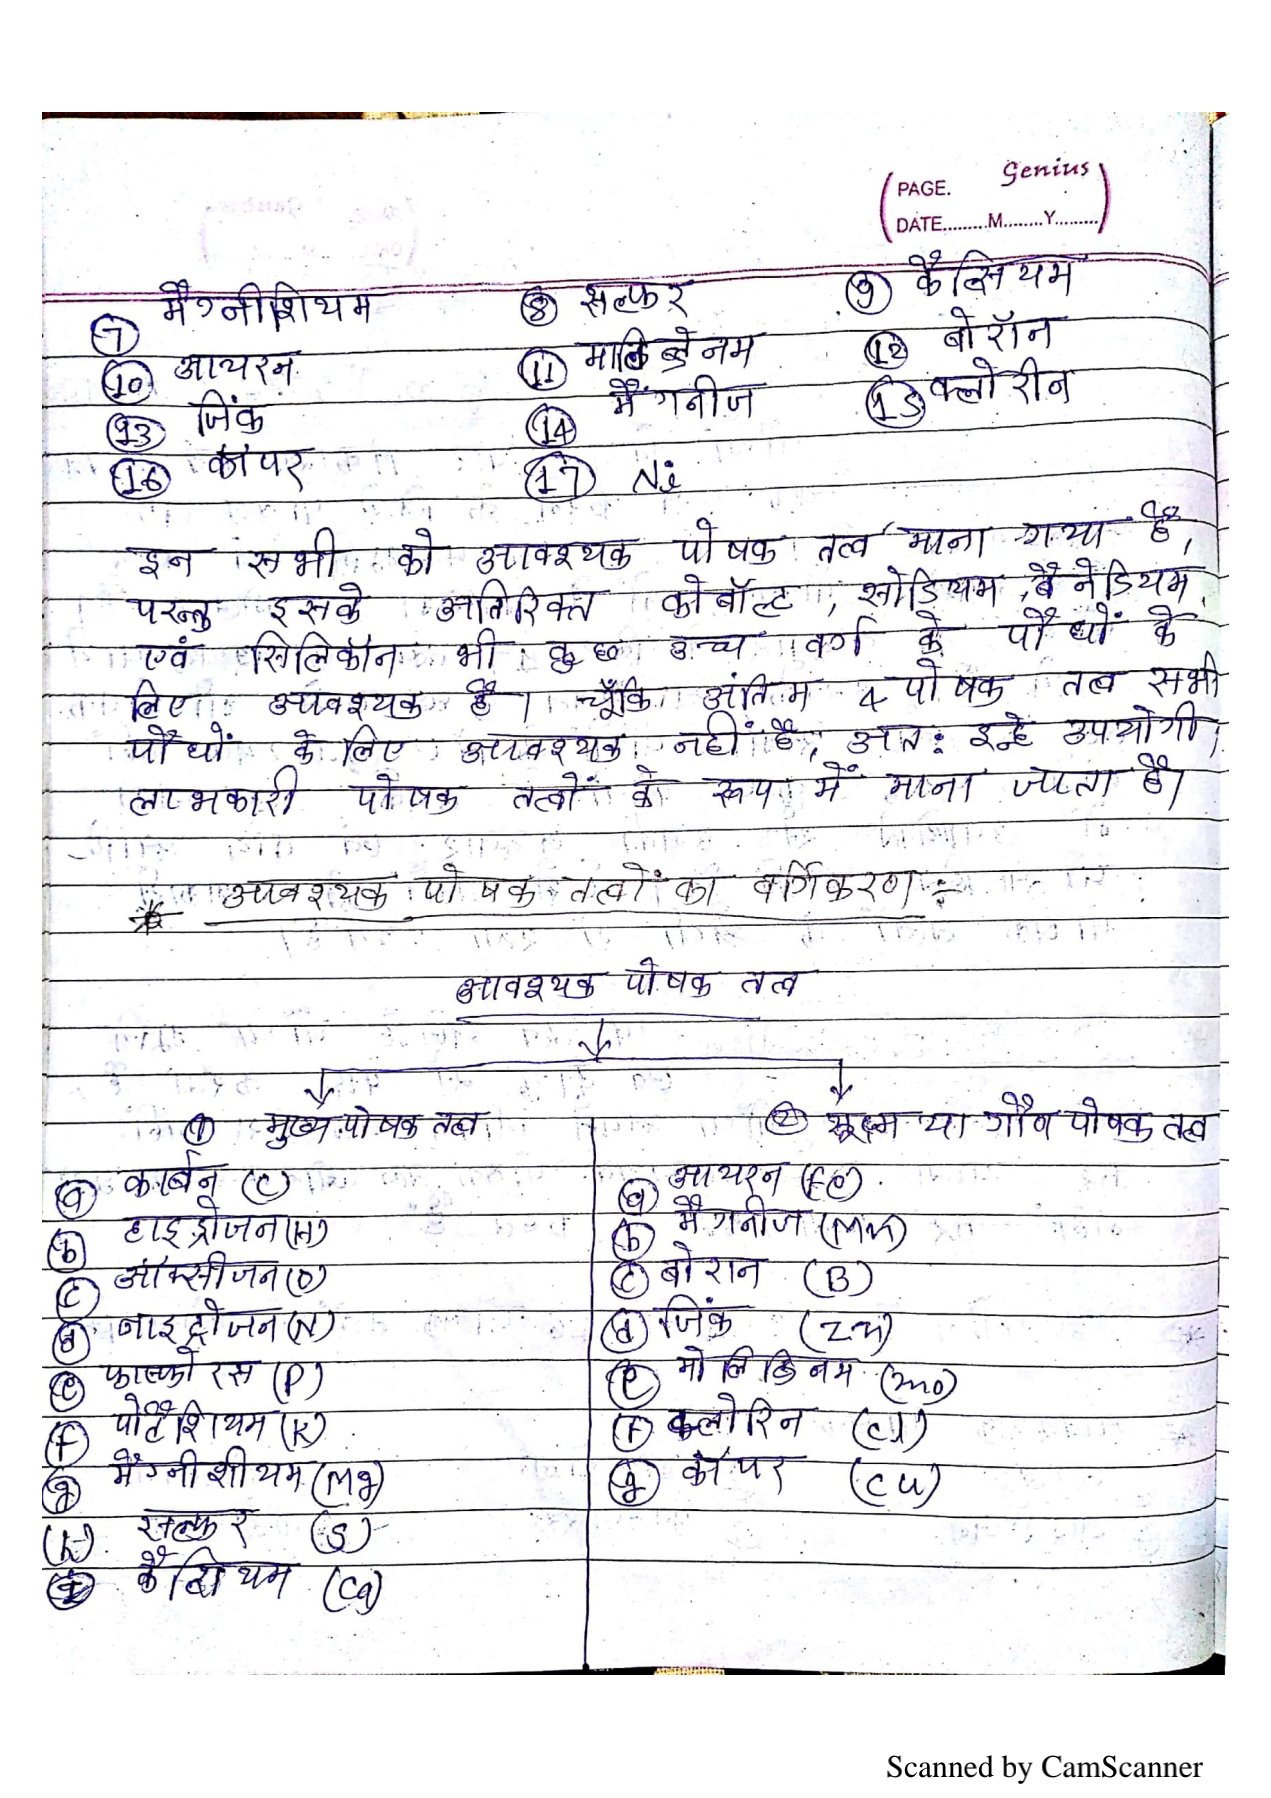 Genius
PAGE.
DATE.........M........Y.........
⑦ मैग्नीशियम ⑧ सल्फर ⑨ कैल्सियम
⑩ आयरन ⑪ मालिब्डेनम ⑫ बोरॉन
⑬ जिंक ⑭ मैंगनीज ⑮ क्लोरीन
⑯ कॉपर ⑰ Ni
इन सभी को आवश्यक पोषक तत्व माना गया है,
परन्तु इसके अतिरिक्त कोबॉल्ट, सोडियम, बैनेडियम,
एवं सिलिकॉन भी कुछ उच्च वर्ग के पौधों के
लिए आवश्यक है। चूँकि अंतिम 4 पोषक तत्व सभी
पौधों के लिए आवश्यक नहीं है, अतः इन्हे उपयोगी,
लाभकारी पोषक तत्वों के रूप में माना जाता है।
* आवश्यक पोषक तत्वों का वर्गिकरण :-
आवश्यक पोषक तत्व
① मुख्य पोषक तत्व ② सूक्ष्म या गौण पोषक तत्व
ⓐ कार्बन (C) ⓐ आयरन (Fe).
ⓑ हाइड्रोजन (H) ⓑ मैगनीज (Mn)
ⓒ ऑक्सीजन (O) ⓒ बोरान (B)
ⓓ नाइट्रोजन (N) ⓓ जिंक (Zn)
ⓔ फास्फोरस (P) ⓔ मोलिडिनम (mo)
ⓕ पोटैशियम (K) ⓕ क्लोरिन (cl)
ⓖ मैग्नीशीयम (Mg) ⓖ कॉपर (cu)
(h) सल्फर (S)
ⓘ कैल्शियम (Ca)
Scanned by CamScanner